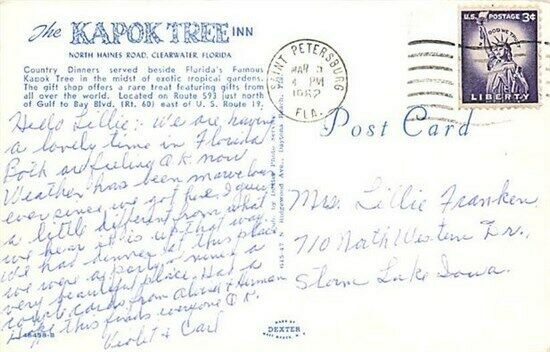 The KAPOK TREE INN
NORTH HAINES ROAD, CLEARWATER, FLORIDA
Country Dinners served beside Florida's Famous
Kapok Tree in the midst of exotic tropical gardens.
The gift shop offers a rare treat featuring gifts from
all over the world. Located on Route 593 just north
of Gulf to Bay Blvd. (Rt. 60) east of U.S. Route 19.
Hello Lillie: We are having
a lovely time in Florida
Both are feeling O.K. now
Weather has been marvelous
ever since we got here. I guess
a little different from what
we hear it is up that way.
We had dinner at this place
we were a party of nine a
very beautiful place. Had a
couple cards from Alma & Herman
Hope this finds everyone O.K.
Violet & Carl
48498-B
SAINT PETERSBURG
MAR
PM
1962
FLA.
U.S. POSTAGE 3¢
IN GOD WE TRUST
LIBERTY
Post Card
Mrs. Lillie Franken
710 North Western Dr.,
Storm Lake Iowa.
MADE BY
DEXTER
WEST NYACK, N.Y.